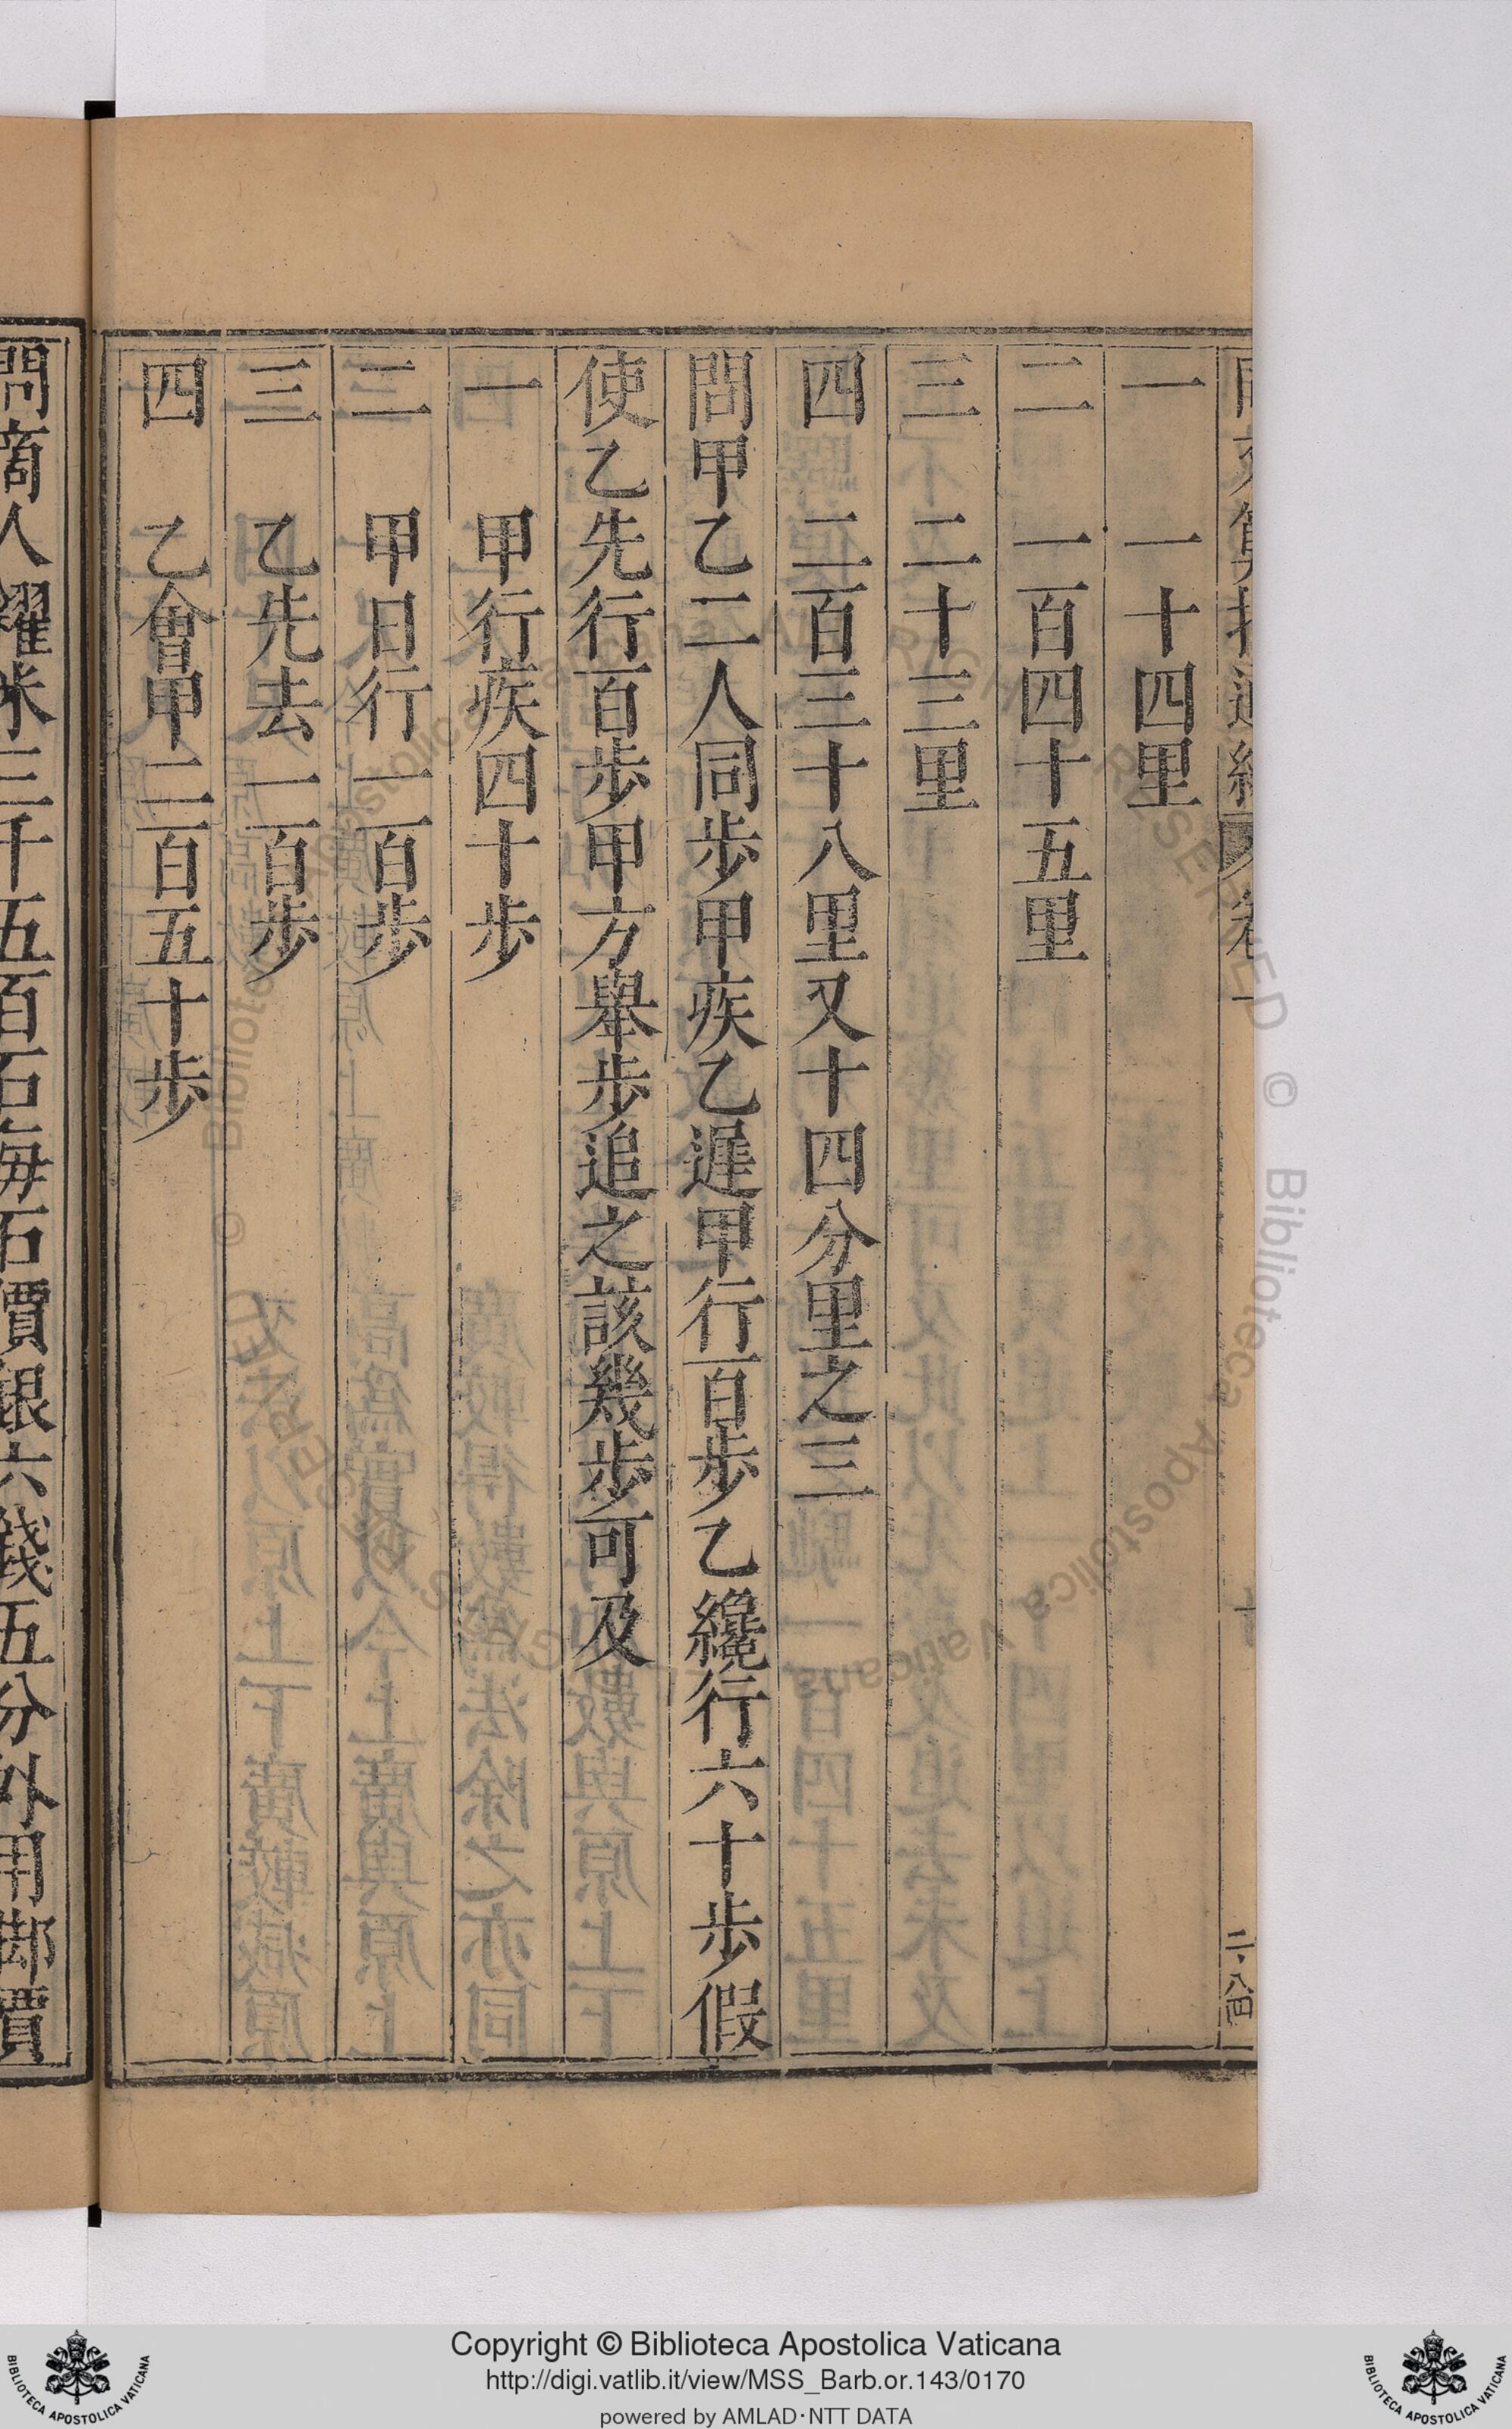 一　一十四里
二　一百四十五里
三　二十三里
四　二百三十八里又十四分里之三
問甲乙二人同步甲疾乙遲甲行百步乙纔行六十步假
使乙先行百步甲方舉步追之該幾步可及
一　甲行疾四十步
二　甲日行一百步
三　乙先去一百步
四　乙會甲二百五十步
問商人糴米三千五百石每石價銀六錢五分外用脚價
Copyright © Biblioteca Apostolica Vaticana
http://digi.vatlib.it/view/MSS_Barb.or.143/0170
powered by AMLAD·NTT DATA
BIBLIOTECA APOSTOLICA VATICANA
BIBLIOTECA APOSTOLICA VATICANA